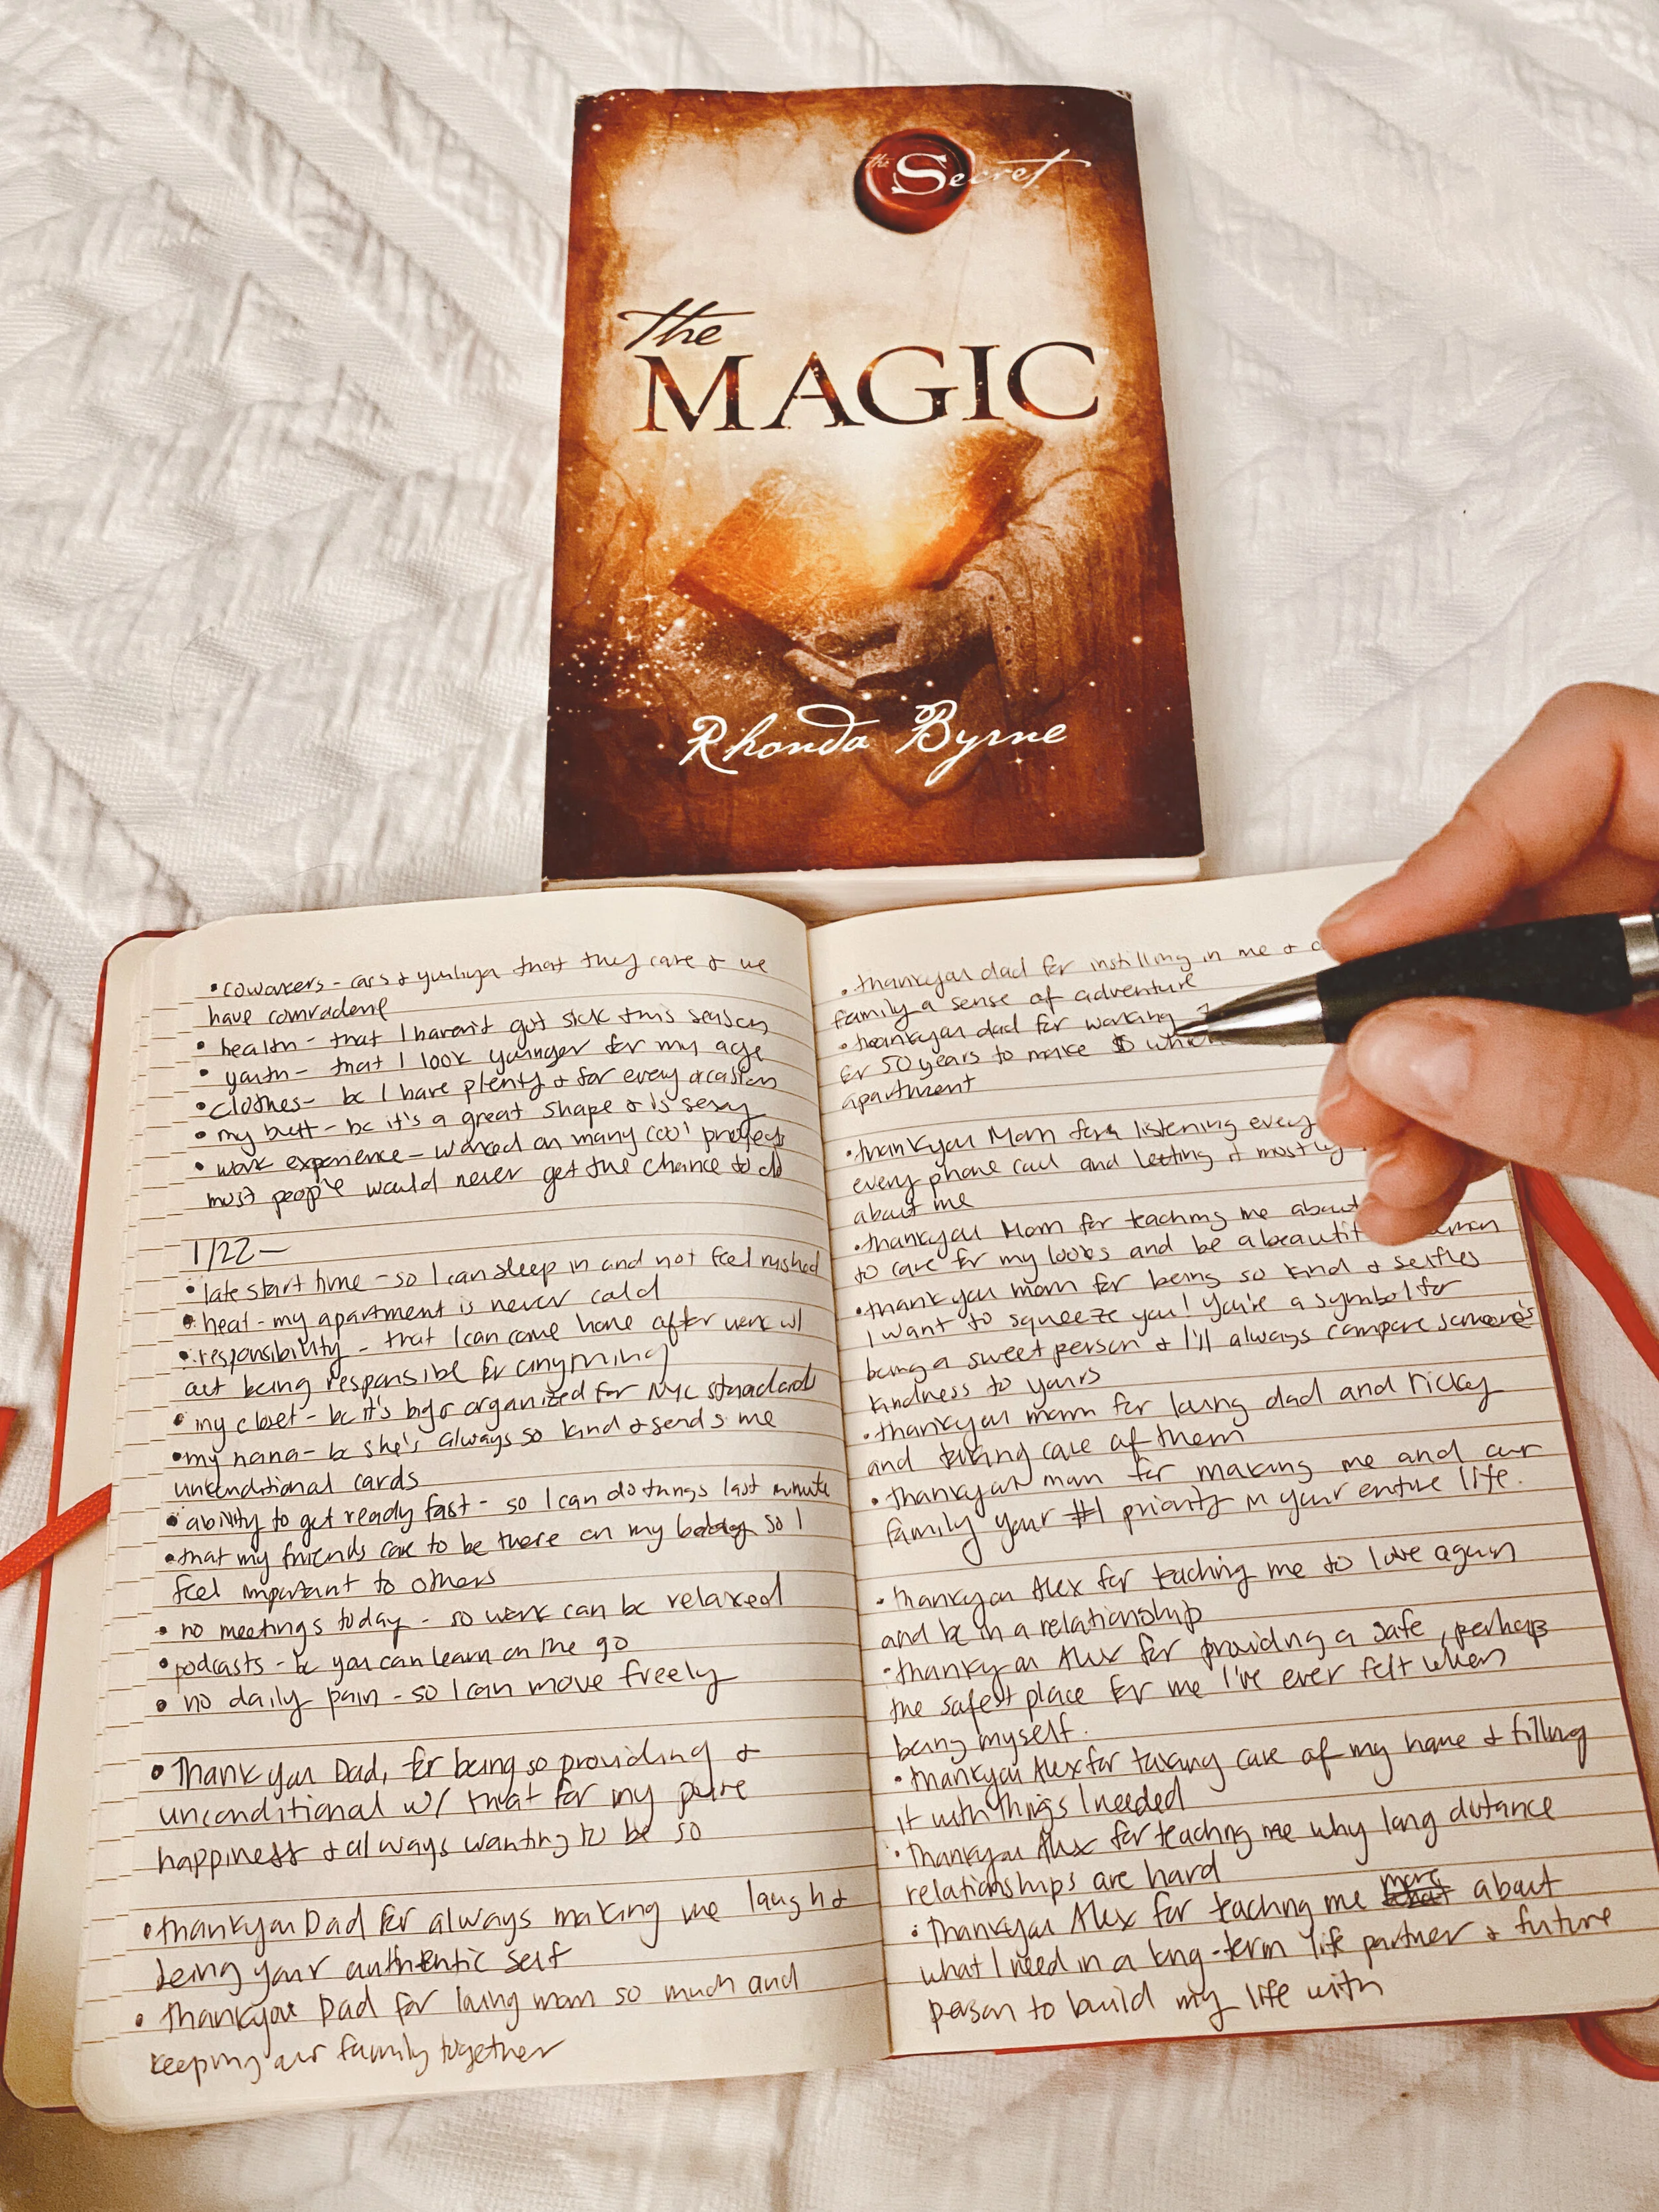 the Secret
the
MAGIC
Rhonda Byrne
• coworkers - cars & that they care & we
have
• health - that I haven't got sick this season
• youth - that I look younger for my age
• clothes - bc I have plenty & for every ocasion
• my butt - bc it's a great shape & is sexy
• work experience - worked on many cool projects
most people would never get the chance to do
1/22 -
• late start time - so I can sleep in and not feel rushed
• heat - my apartment is never cold
• responsibility - that I can come home after work w/
out being responsible for anything
• my closet - bc it's big & organized for NYC standards
• my nana - bc she's always so kind & sends me
unconditional cards
• ability to get ready fast - so I can do things last minute
• that my friends care to be there on my bday so I
feel important to others
• no meetings today - so work can be relaxed
• podcasts - bc you can learn on the go
• no daily pain - so I can move freely
• Thank you Dad, for being so providing &
unconditional w/ that for my pure
happiness & always wanting to be so
• thankyou Dad for always making me laugh &
being your authentic self
• thankyou Dad for loving mom so much and
keeping our family together
• thankyou dad for instilling in me &
family a sense of adventure
• thankyou dad for working
for 50 years to make $
apartment
• thankyou Mom for listening every
every phone call and letting it mostly
about me
• thankyou Mom for teaching me about
to care for my looks and be a
• thankyou mom for being so kind & selfles
I want to squeeze you! You're a symbol for
being a sweet person & I'll always compare someone's
kindness to yours
• thankyou mom for loving dad and ricky
and taking care of them
• thankyou mom for making me and our
family your #1 priority in your entire life.
• thankyou Alex for teaching me to love again
and be in a relationship
• thankyou Alex for providing a safe, perhaps
the safest place for me I've ever felt when
being myself.
• thankyou Alex for taking care of my home & filling
it with things I needed
• thankyou Alex for teaching me why long distance
relationships are hard
• thankyou Alex for teaching me more about
what I need in a long-term life partner & future
person to build my life with